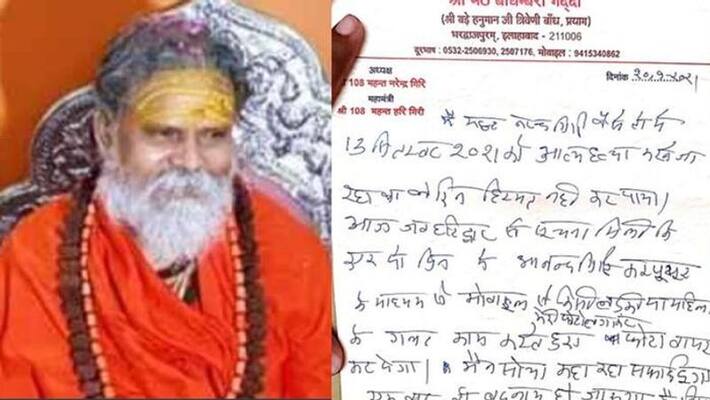 श्री मठ बाघम्बरी गद्दी
(श्री बड़े हनुमान जी त्रिवेणी बाँध, प्रयाग)
भरद्वाजपुरम्, इलाहाबाद - 211006
दूरभाष : 0532-2506930, 2507176, मोबाइल : 9415340862
अध्यक्ष
दिनांक
श्री 108 महन्त नरेन्द्र गिरि
महामंत्री
श्री 108 महन्त हरि गिरी
मै महन्त नरेन्द्र गिरि वैसे तो मै
13 सितम्बर 2021 को आत्म हत्या करने जा
रहा था लेकिन हिम्मत नही कर पाया।
आज जब हरिद्वार से सूचना मिली कि
एक दो दिन के आनन्द गिरि कम्प्यूटर
के माध्यम से मोबाइल से किसी लड़की या महिला
के गलत काम करते हुए फोटो वायरल
कर देगा। मैने सोचा कहा तक सफाई दूंगा
एक बार तो बदनाम हो जाऊगा